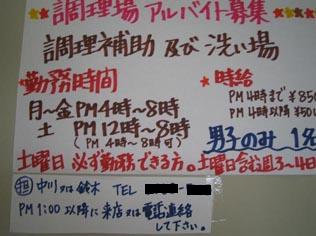 調理場 アルバイト募集
調理補助 及び 洗い場
勤務時間
月〜金 PM4時〜8時
土 PM12時〜8時
(PM4時〜8時可)
時給
PM4時まで ¥850
PM4時以降 ¥50
男子のみ 1名
土曜日 必ず勤務できる方。土曜日含む週3〜4日
担 中川 又は 鈴木 TEL
PM1:00以降に来店又は電話連絡
して下さい。